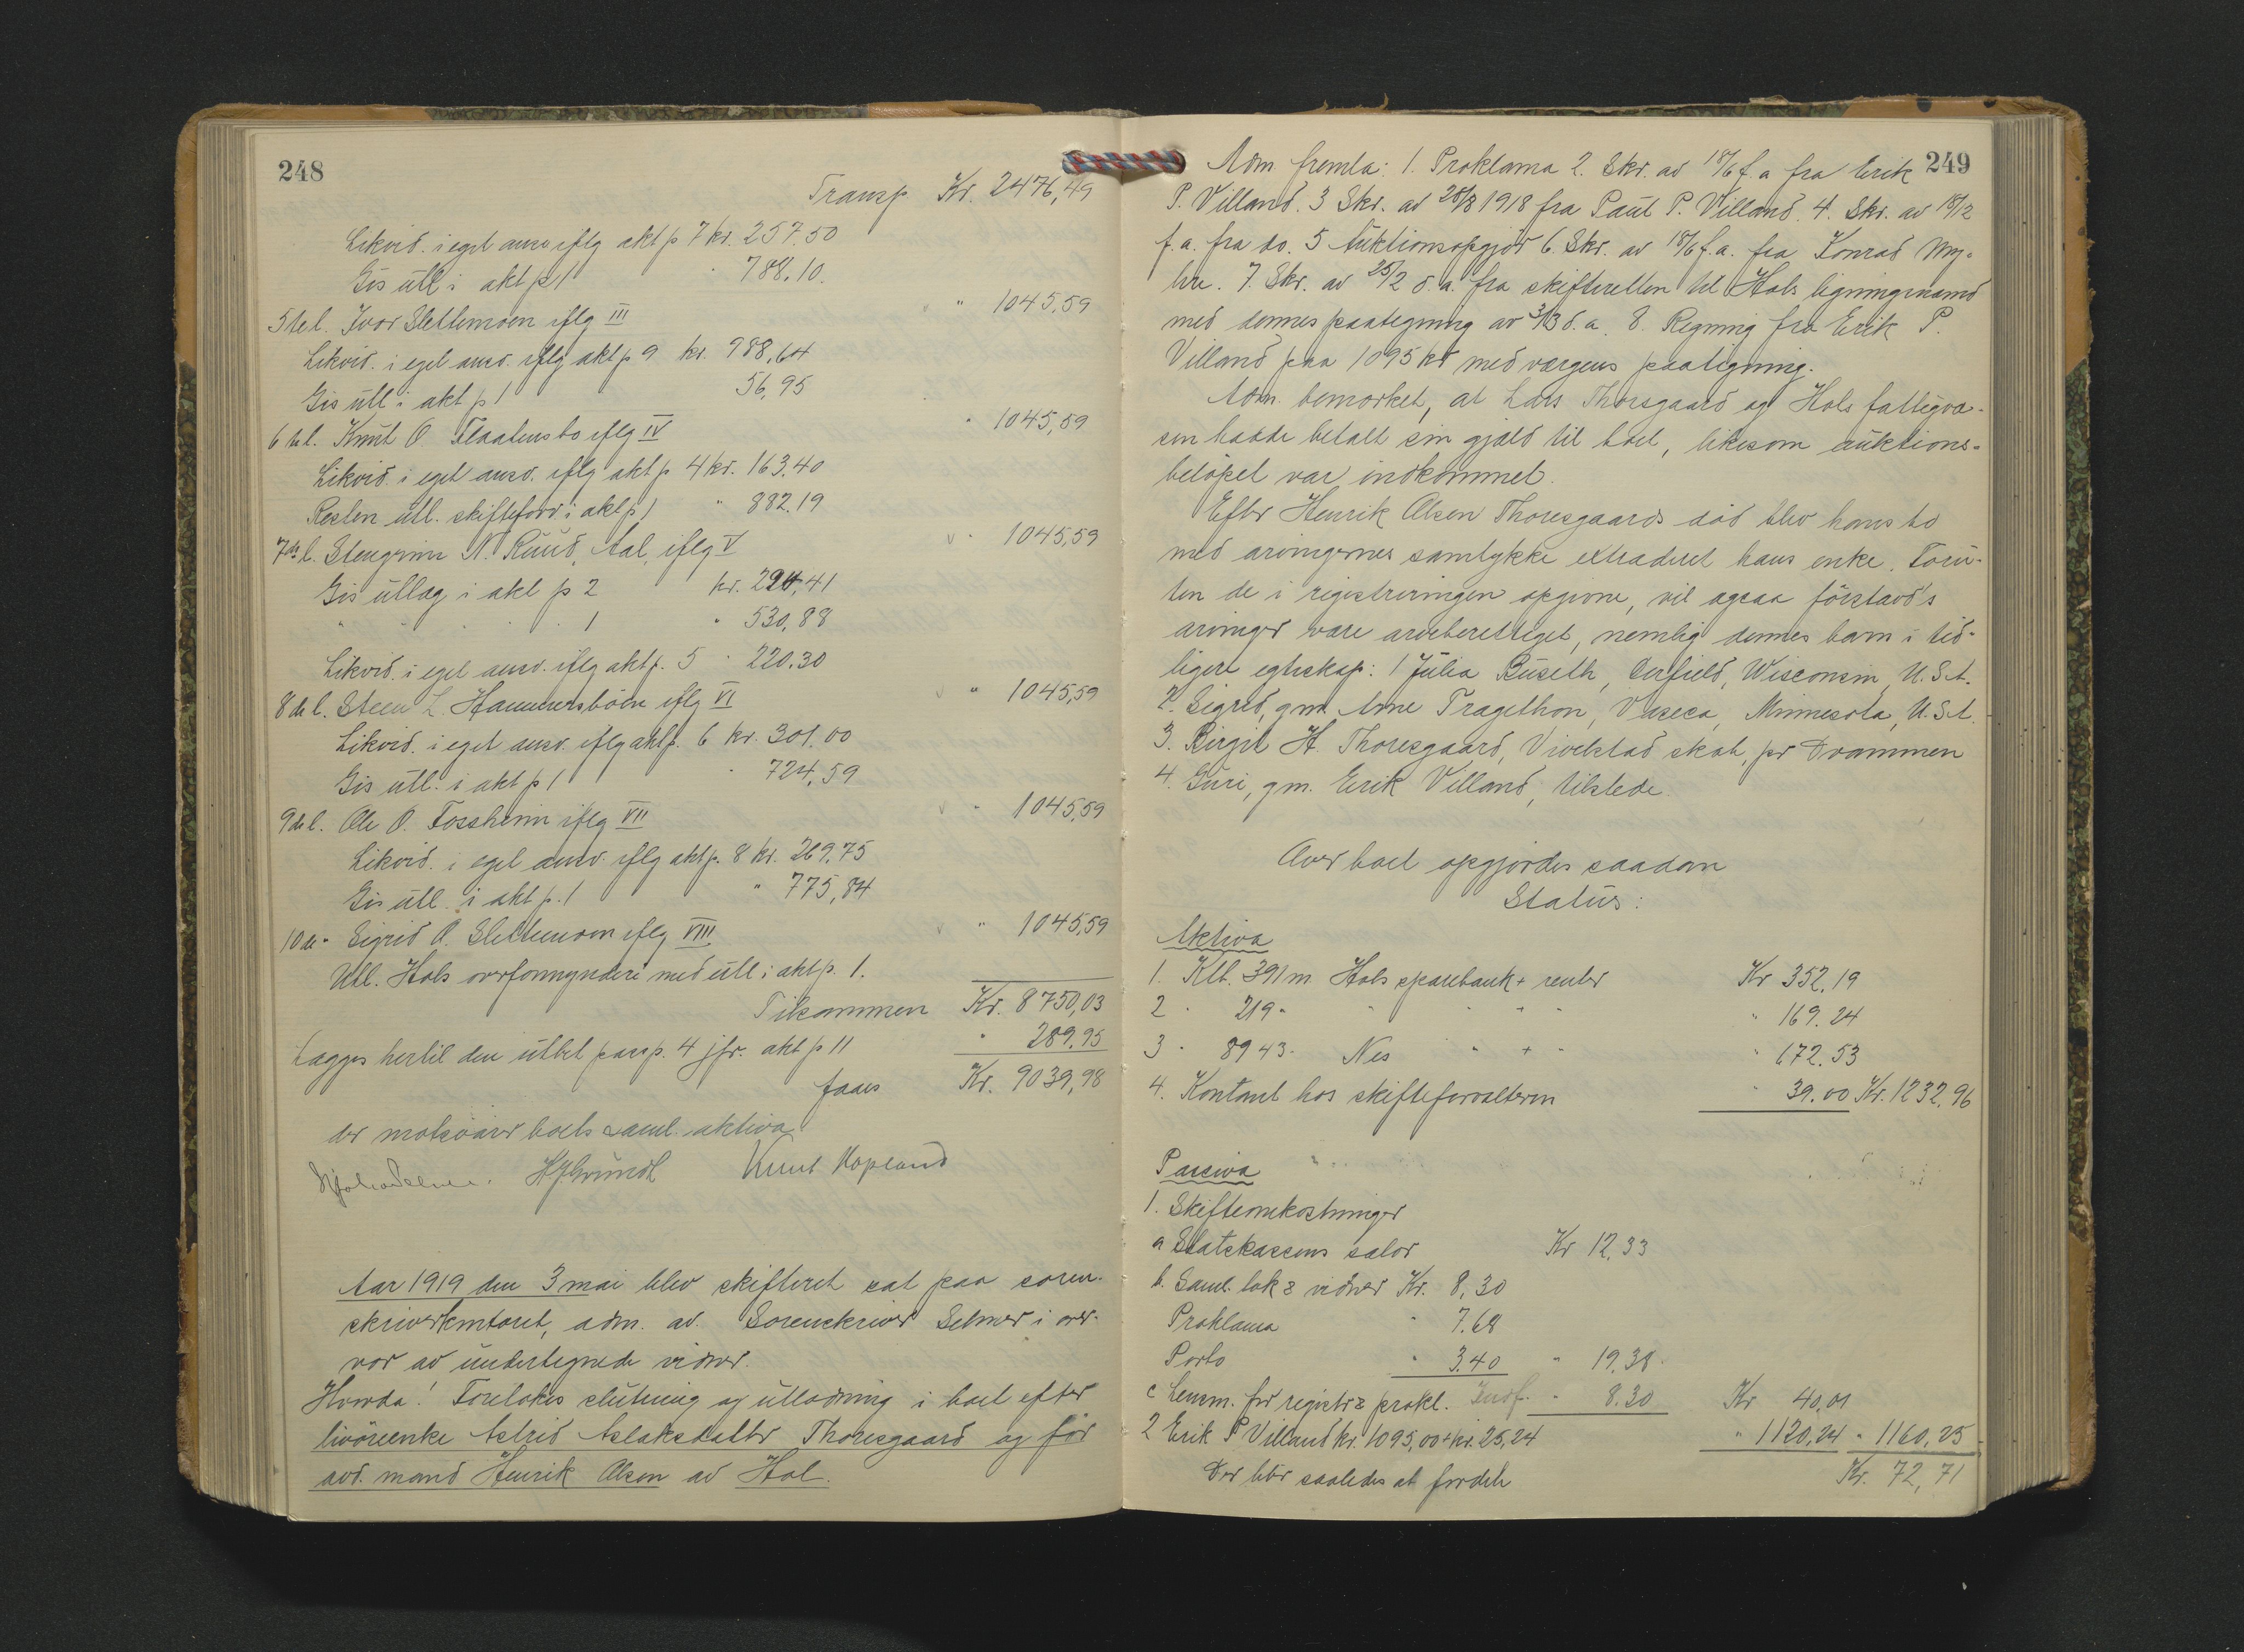 248
Transp Kr. 2476,49
Likvid. i eget ansv iflg akt p 7 kr. 257.50
Gis utl i akt p 1 " 788.10.
5te l. Ivar Slettemoen iflg III " 1045,59
Likvid. i eget ansv. iflg akt p 9 kr. 988,64
Gis utl i akt p 1 56,95
6te l. Knut O. Flaatensbo iflg IV " 1045,59
Likvid. i eget ansv. iflg akt p 4 kr. 163.40
Resten utl. skifteford. i akt p 1 " 882.19
7de l. Stengrim N. Ruud, Aal, iflg V " 1045,59
Gis utlæg i akt p 2 kr. 294,41
" " " " 1 " 530,88
Likvid. i eget ansv. iflg akt p. 5 " 220.30
8de l. Steen L. Hammersbøen iflg VI " 1045,59
Likvid. i eget ansv. iflg akt p. 6 kr. 301.00
Gis utl. i akt p 1 " 724,59
9de l. Ole O. Fossheim iflg VII " 1045,59
Likvid. i eget ansv. iflg akt p. 8 kr. 269.75
Gis utl. i akt p. 1 " 775,84
10de " Sigrid O. Slettemoen iflg VIII " 1045,59
Utl. Hols overformynderi med utl i akt p. 1.
Tilsammen Kr. 8750,03
Lægges hertil den utlbet pass p. 4 jfr. akt p 11 " 289.95
faaes Kr. 9039,98
der motsvarer boets saml. aktiva
H.J. Gründt Knut Kopland
Aar 1919 den 3 mai blev skifteret sat paa soren-
skriverkontoret, adm. av. Sorenskriver Selmer i over-
vær av undertegnede vidner.
Hvorda! Foretokes slutning og utlodning i boet efter
livøreenke Astrid Aslaksdatter Thoresgaard og før
avd. mand Henrik Olsen av Hol.
249
Adm. fremla: 1. Proklama 2. Skr. av 18/6 f. a fra Erik
P. Villand. 3 Skr. av 28/8 1918 fra Paul P. Villand. 4. Skr. av 18/12
f. a. fra do. 5 Auktionsopgjør 6. Skr. av 18/6 f. a. fra Konrad My-
hre. 7. Skr. av 25/2 d. a. fra skifteretten til Hols ligningsnæmd
med dennes paategning av 3/3 d. a. 8. Regning fra Erik P.
Villand paa 1095 kr med værgens paategning.
Adm. bemærket, at Lars Thorsgaard og Hols fattigvæ-
sen hadde betalt sin gjæld til boet, likesom auktions-
beløpet var indkommet.
Efter Henrik Olsen Thoresgaards død blev hans bo
med arvingernes samtykke extraderet hans enke. Foru-
ten de i registreringen opgivne, vil ogsaa førstavd's
arvinger være arveberettiget, nemlig dennes barn i tid-
ligere egteskap: 1 Julia Ruseth, Derfield, Wisconsin, U.S.A.
2. Sigrid, gm. Arne Tragethon, Vaseca, Minnesota, U.S.A.
3. Birgit H. Thoresgaard, Vivelstad skole, pr Drammen
4. Guri, gm. Erik Villand, tilstede.
Over boet opgjordes saadan
Status:
Aktiva
1. Ktb. 391 m. Hols sparebank + renter Kr 352.19
2 " 219 " " " " " " 169.24
3 " 8943 " Nes " + " " 672.53
4. Kontant hos skifteforvalteren " 39.00 Kr. 1232.96
Passiva
1. Skifteomkostninger
a Statskassens salær Kr 12,33
b. Saml. lok & vidner Kr. 8,30
Proklama " 7.68
Porto " 3.40 " 19.38
c Lensm. for registr & prokl. Indf. " 8.30 Kr 40,01
2 Erik P Villand kr. 1095,00 + kr. 25,24 " 1120,24 " 1160,25
Der blir saaledes at fordele Kr. 72,71